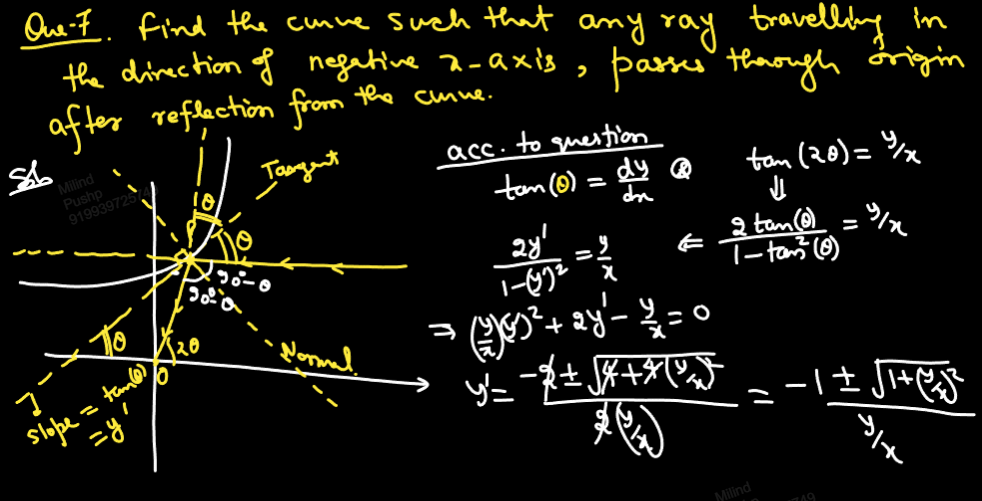 Que-7. Find the curve such that any ray travelling in
the direction of negative x-axis, passes through origin
after reflection from the curve.
Sol.
Milind
Pushp
Tangent
θ
θ
90°-θ
90°-θ
θ
2θ
O
Normal
slope = tan(θ)
= y'
acc. to question
tan(θ) = dy/dx & tan(2θ) = y/x
⇓
2y'/(1-(y')²) = y/x ⇐ 2tan(θ)/(1-tan²(θ)) = y/x
⇒ (y/x)(y')² + 2y' - y/x = 0
y' = (-2 ± √(4+4(y/x)²))/(2(y/x)) = (-1 ± √(1+(y/x)²))/(y/x)
Milind